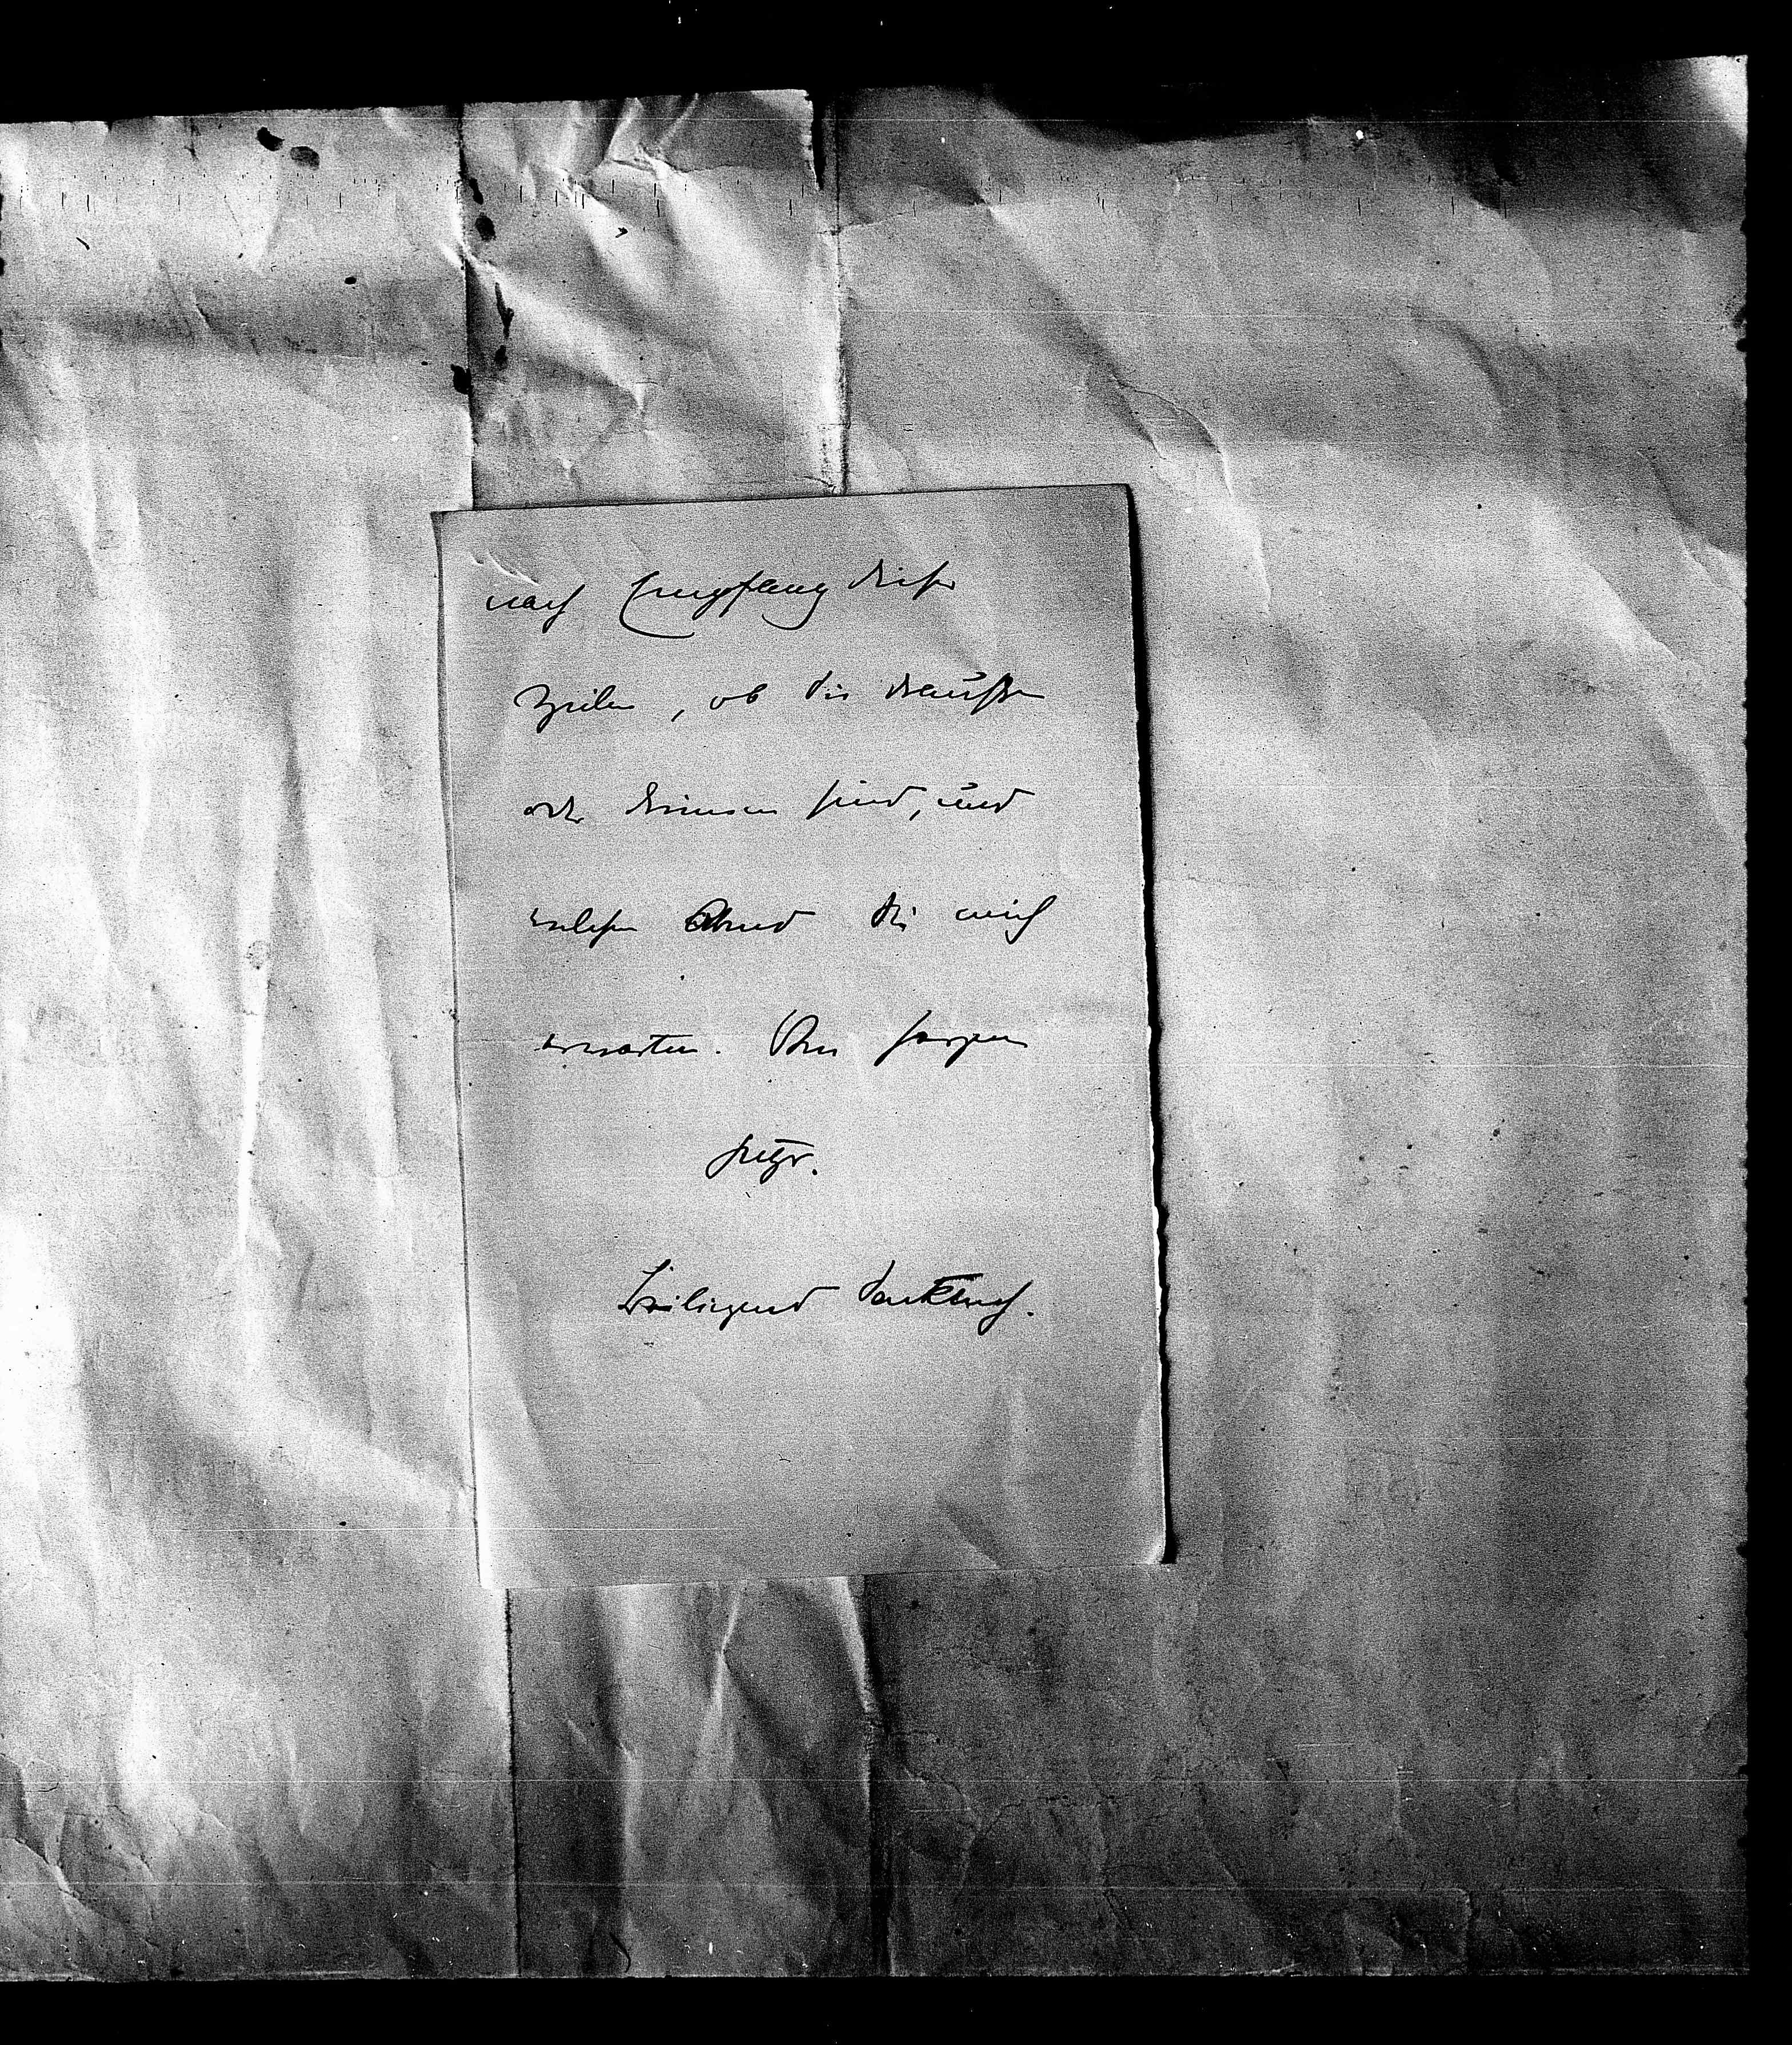 nach Empfang dieser
Zeilen, ob Sie draußen
oder drinnen sind, und
welchen Abend Sie mich
erwarten. Ihr
Beiliegend